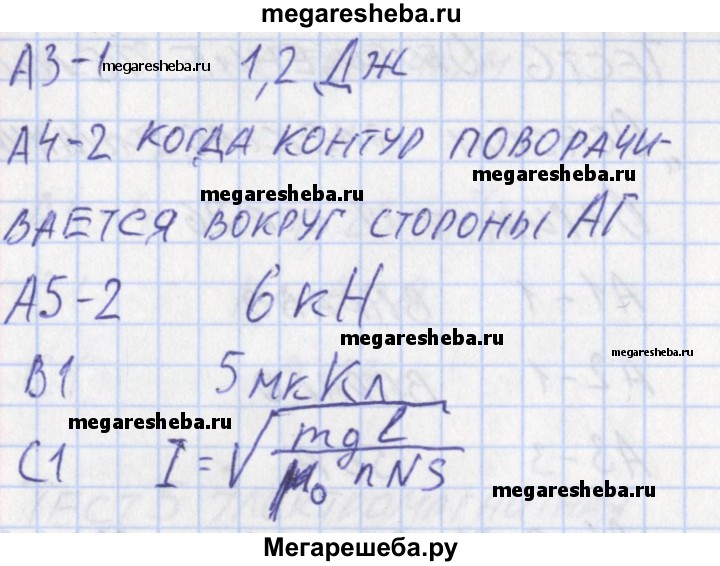 megaresheba.ru
А3-1 megaresheba.ru 1,2 ДЖ
А4-2 КОГДА КОНТУР ПОВОРАЧИ-
megaresheba.ru megaresheba.ru
ВАЕТСЯ ВОКРУГ СТОРОНЫ АГ
А5-2 6 кН
megaresheba.ru megaresheba.ru
В1 5 мкКл
megaresheba.ru
С1 I = √(mgl / μ₀nNS)
megaresheba.ru
Мегарешеба.ру